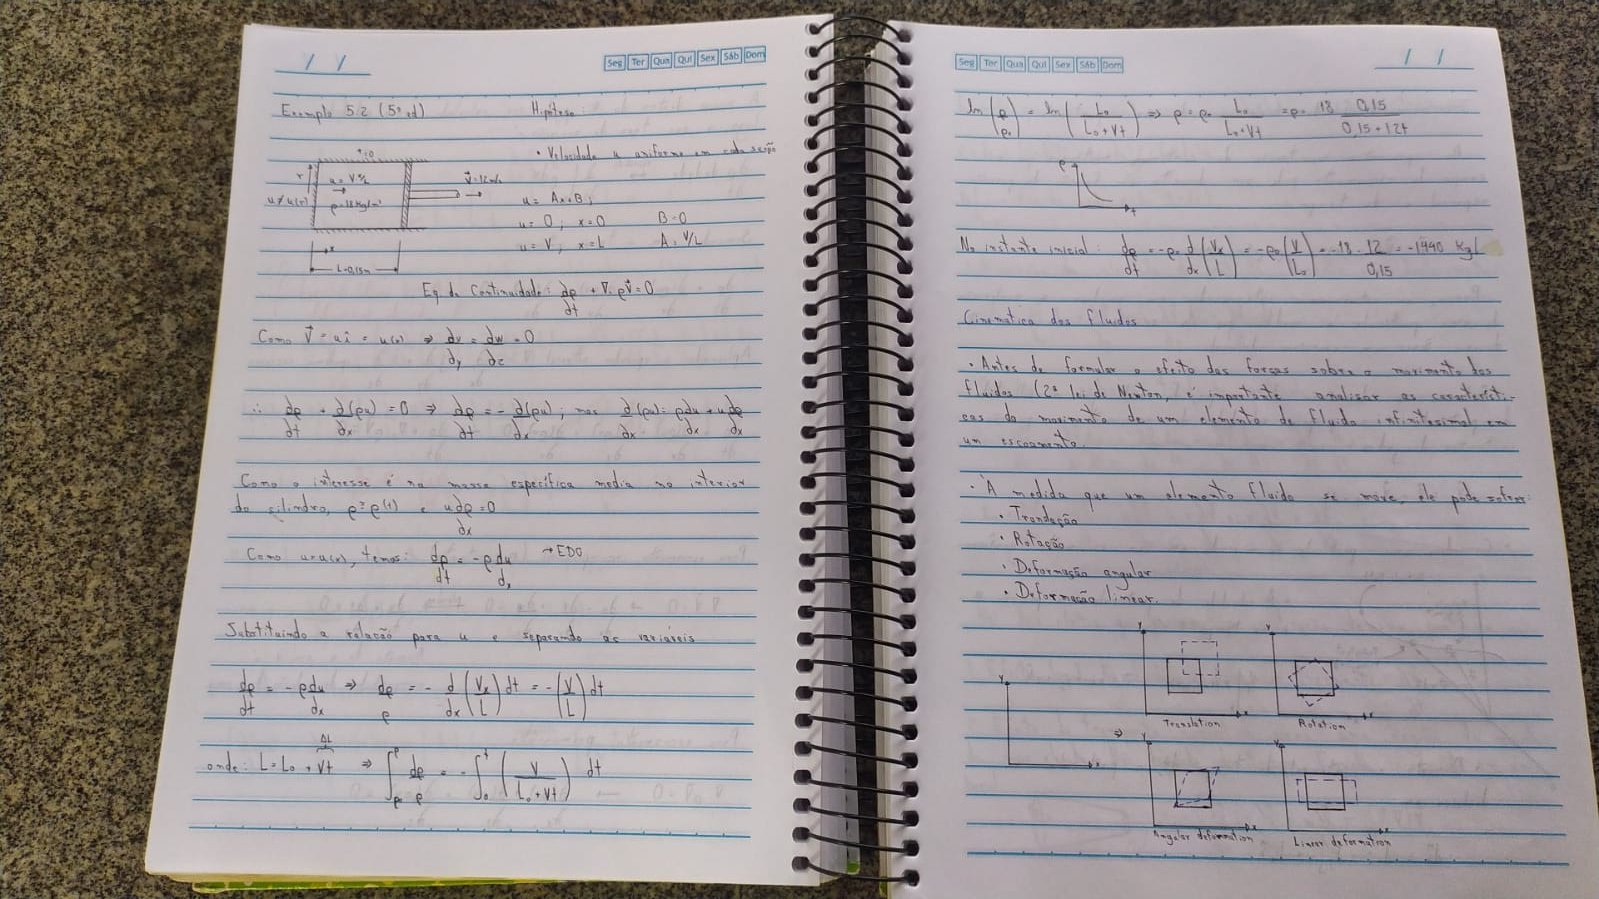 / /
Seg Ter Qua Qui Sex Sáb Dom
Exemplo 5.2 (5ª ed)
Hipótese:
• Velocidade u uniforme em cada seção
t=0
r
u = V x/L
ρ=18 kg/m³
V⃗=12m/s
u ≠ u(r)
x
L=0,15m
u = Ax+B;
u=0; x=0 B=0
u=V; x=L A=V/L
Eq da Continuidade: ∂ρ/∂t + ∇·ρV⃗ = 0
Como V⃗ = uî = u(x) ⇒ ∂v/∂y = ∂w/∂z = 0
∴ ∂ρ/∂t + ∂(ρu)/∂x = 0 ⇒ ∂ρ/∂t = -∂(ρu)/∂x; mas ∂(ρu)/∂x = ρ∂u/∂x + u∂ρ/∂x
Como o interesse é na massa específica media no interior
do cilindro, ρ=ρ(t) e u∂ρ/∂x=0
Como u=u(x), temos: dρ/dt = -ρ du/dx → EDO
Substituindo a relação para u e separando as variáveis
dρ/dt = -ρ du/dx ⇒ dρ/ρ = - d/dx (Vx/L) dt = -(V/L) dt
onde: L = L₀ + Vt ⇒ ∫ρ₀^ρ dρ/ρ = -∫₀^t (V/(L₀+Vt)) dt
ΔL
Seg Ter Qua Qui Sex Sáb Dom
/ /
ln(ρ/ρ₀) = ln(L₀/(L₀+Vt)) ⇒ ρ = ρ₀ L₀/(L₀+Vt) = ρ = 18 0,15/(0,15+12t)
ρ
t
No instante inicial: dρ/dt = -ρ₀ d/dx (Vx/L) = -ρ₀(V/L₀) = -18 · 12/0,15 = -1440 kg/
Cinemática dos fluidos
• Antes de formular o efeito das forças sobre o movimento dos
fluidos (2ª lei de Newton, é importante analisar as característi-
cas do movimento de um elemento de fluido infinitesimal em
um escoamento.
• A medida que um elemento fluido se move, ele pode sofrer:
• Translação
• Rotação
• Deformação angular
• Deformação linear.
y
x
⇒
y
x
Translation
y
x
Rotation
y
x
Angular deformation
y
x
Linear deformation